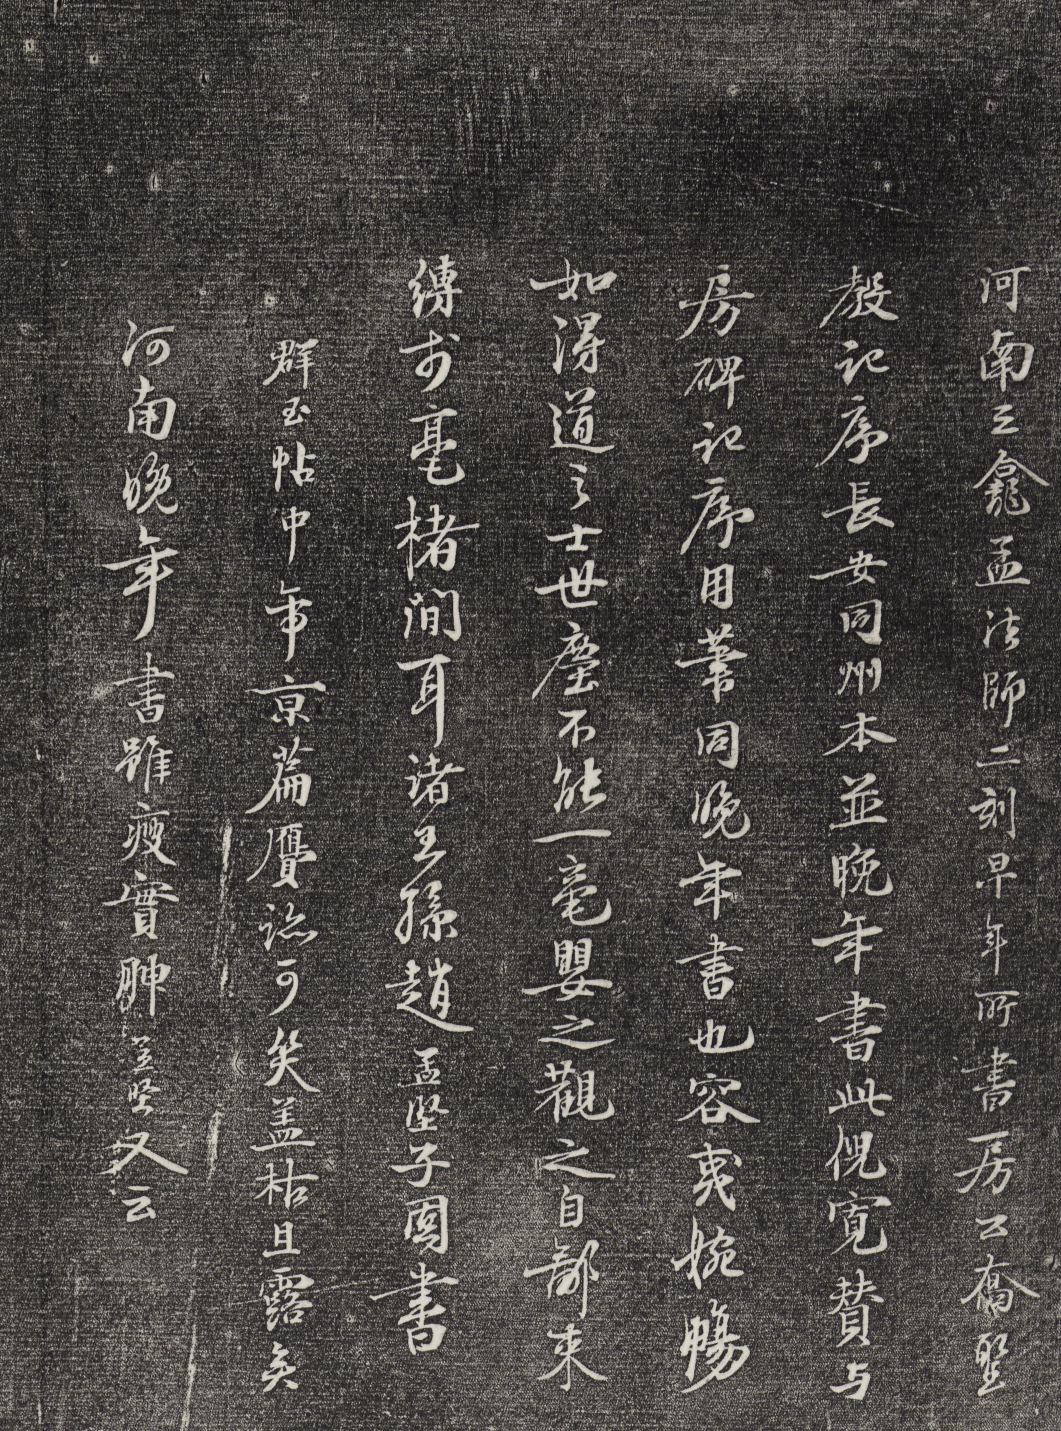 河南三龕孟法師二刻早年所書房公喬聖
教記序長安同州本並晚年書此倪寬贊与
房碑記序用筆同晚年書也容夷婉暢
如得道之士世塵不能一毫嬰之觀之自鄙束
縛於毫楮間耳諸王孫趙孟堅子固書
群玉帖中年京篇贋跡可笑盖枯且露矣
河南晚年書雖瘦實腴孟坚又云